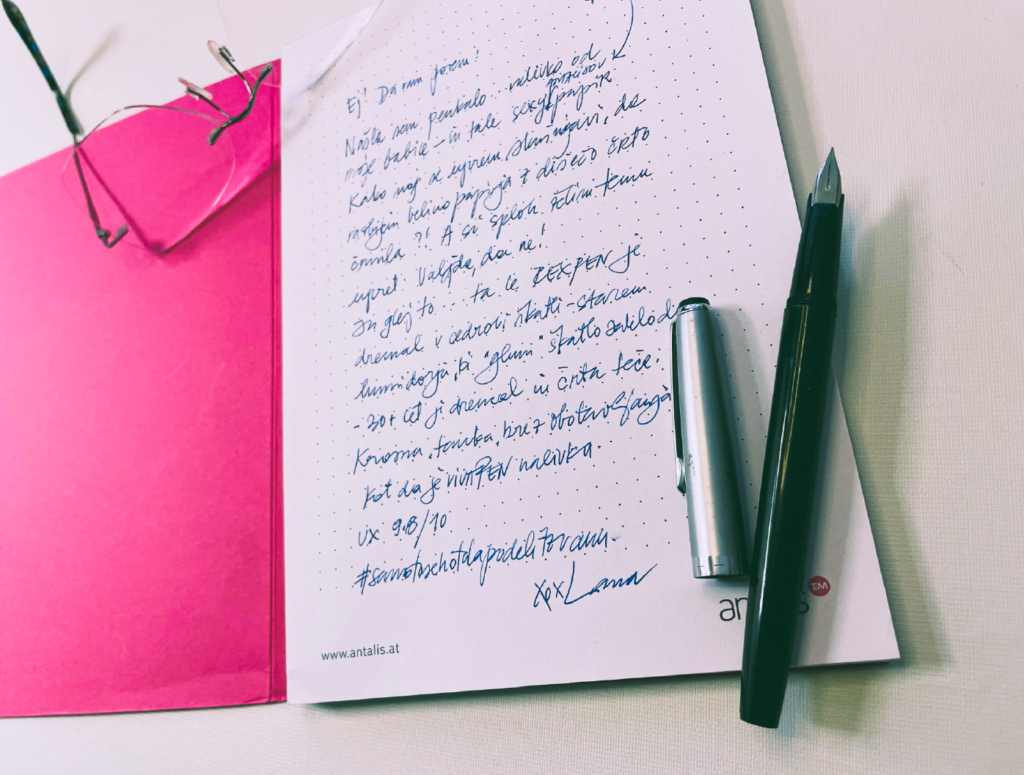 Ej! Da vam povem!
Našla sem penkalo... nalivko od
moje babice - in tale sexy papir.
Kako naj se uprem skušnjavi, da
belino papirja z dišečo črto
črnila?! A si sploh želim temu
upret? Valjda, da ne!
In glej to... ta le REXPEN je
dremal v cedrovi škatli - starem
humidorju, ki "glumi" škatlo za
- 30+ let je dremal in črta teče.
Krasna, tanka, brez obotavljanja
kot da je nalivka
UX 9.8/10
#samotolkohotladelitzvami
xoxLana
www.antalis.at
antalis TM